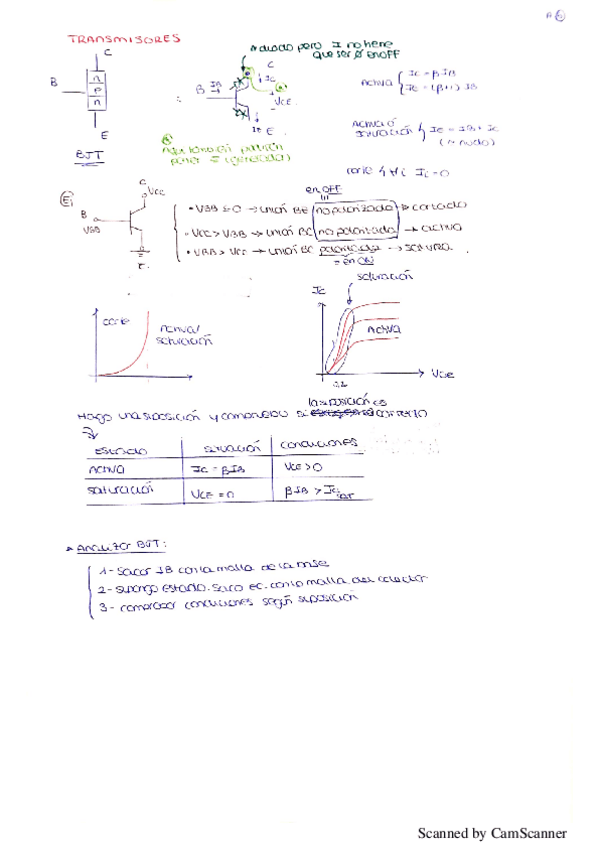 A⑥
TRANSMISORES
diodo pero I no tiene
que ser 0 en OFF
C
B
n
p
n
E
BJT
C
B IB
IC
VCE
IE
E
Activa { IC = βIB
IE = (β+1) IB
Activa o
saturación { IE = IB + IC
(≈ nudo)
corte IC = 0
Ej
C
VCC
B
VBB
E
en OFF
• VBB ≤ 0 → unión BE no polarizada → cortado
• VCC > VBB → unión BC no polarizada → activa
• VBB > VCC → unión BC polarizada → SATURA.
= en ON
corte
Activa/
saturación
saturación
IC
Activa
VCE
0,2
la suposición es
Hago una suposición y compruebo si correcto
ESTADO situación condiciones
Activa IC = βIB VCE > 0
saturación VCE = 0 βIB > IC sat
Analizar BJT:
1- Sacar IB con la malla de la base
2- Supongo estado. Saco ec. con la malla del colector
3- comprobar condiciones según suposición
Scanned by CamScanner